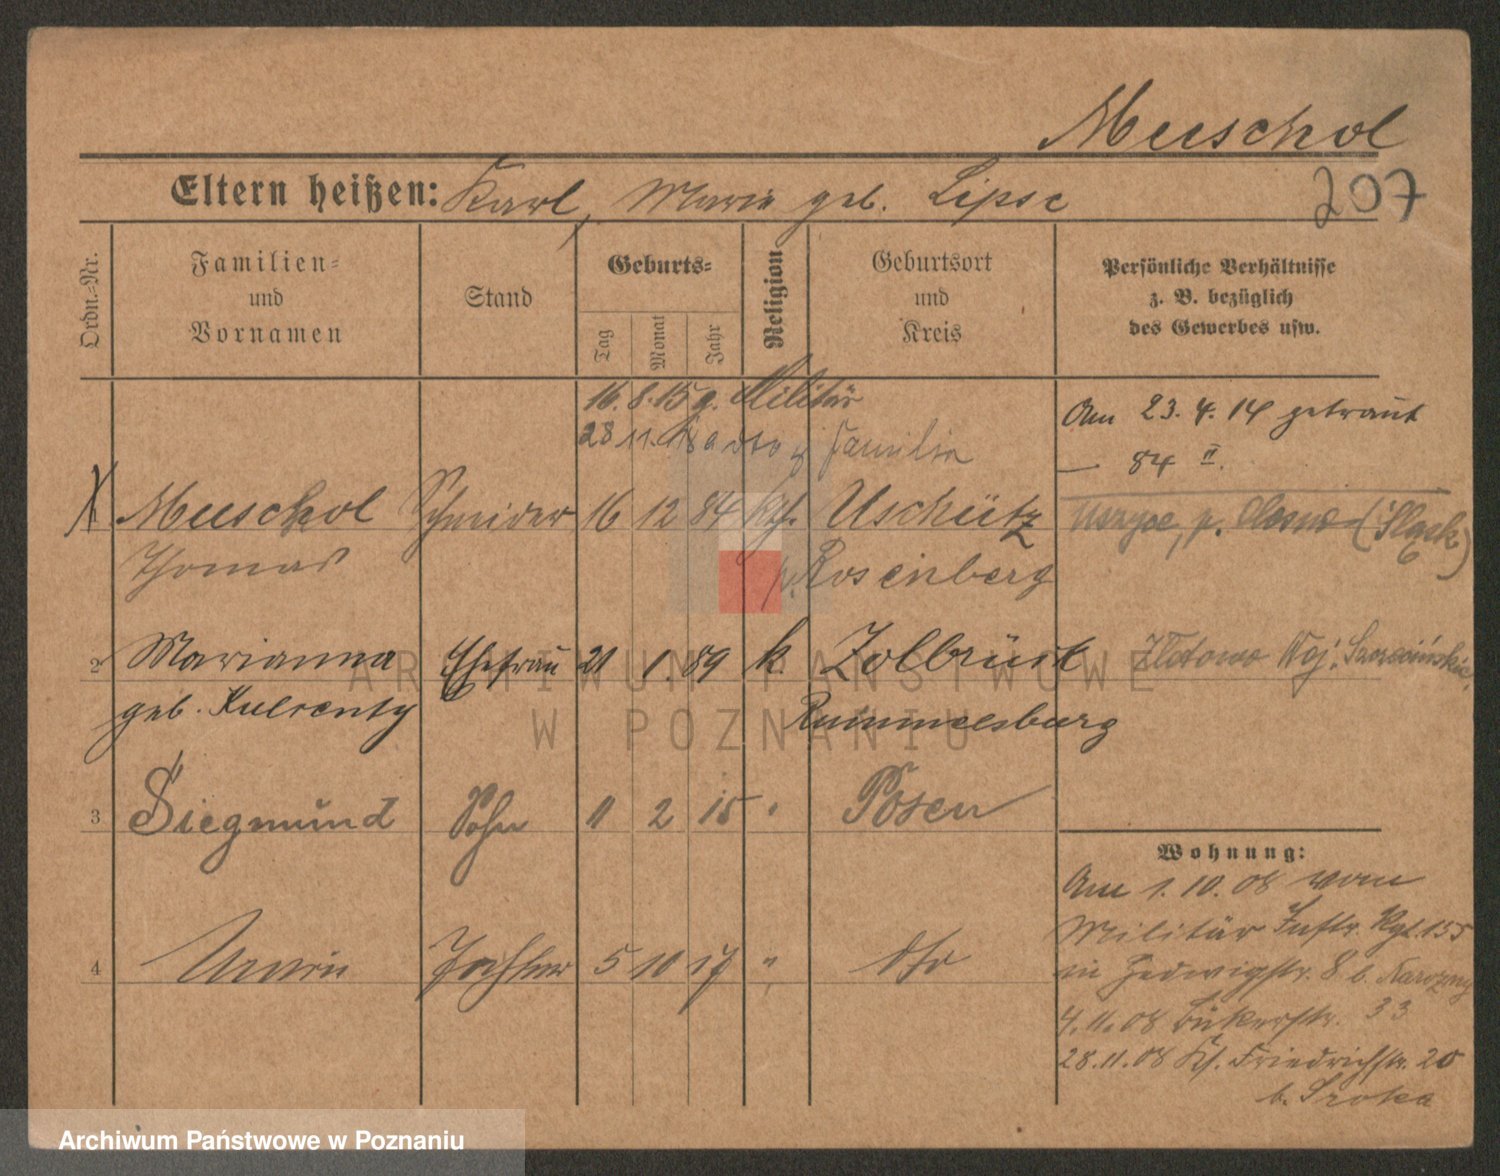 Meeschol
Eltern heißen: Karl, Marie geb. Lipse
207
Ordn.-Nr.
Familien-
und
Vornamen
Stand
Geburts-
Tag
Monat
Jahr
Religion
Geburtsort
und
Kreis
Persönliche Verhältnisse
z. B. bezüglich
des Gewerbes usw.
16. 8. 15 z. Militär
28 11. 18 dto z Familie
Am 23. 4. 14 getraut
— 84 II.
Meeschol Schneider 16 12 84 kth. Uschütz
Uszyce, p. Olesno (Śląsk)
Thomas
Rosenberg
2 Marianna Ehefrau 21 1. 89 k. Zollbrück
Złotowo Woj. Szczecińskie
geb. Rummelsburg
3 Siegmund Sohn 11 2 15 " Posen
4 Tochter 5 10 17 " dto
Wohnung:
Am 1. 10. 08 vom
Militär Inftr. Rgt. 155
in Hedwigstr. 8 b.
4. 11. 08 Bükerstr. 33
28. 11. 08 Kl. Friedrichstr. 20
b. Sroka
ARCHIWUM PAŃSTWOWE
W POZNANIU
Archiwum Państwowe w Poznaniu